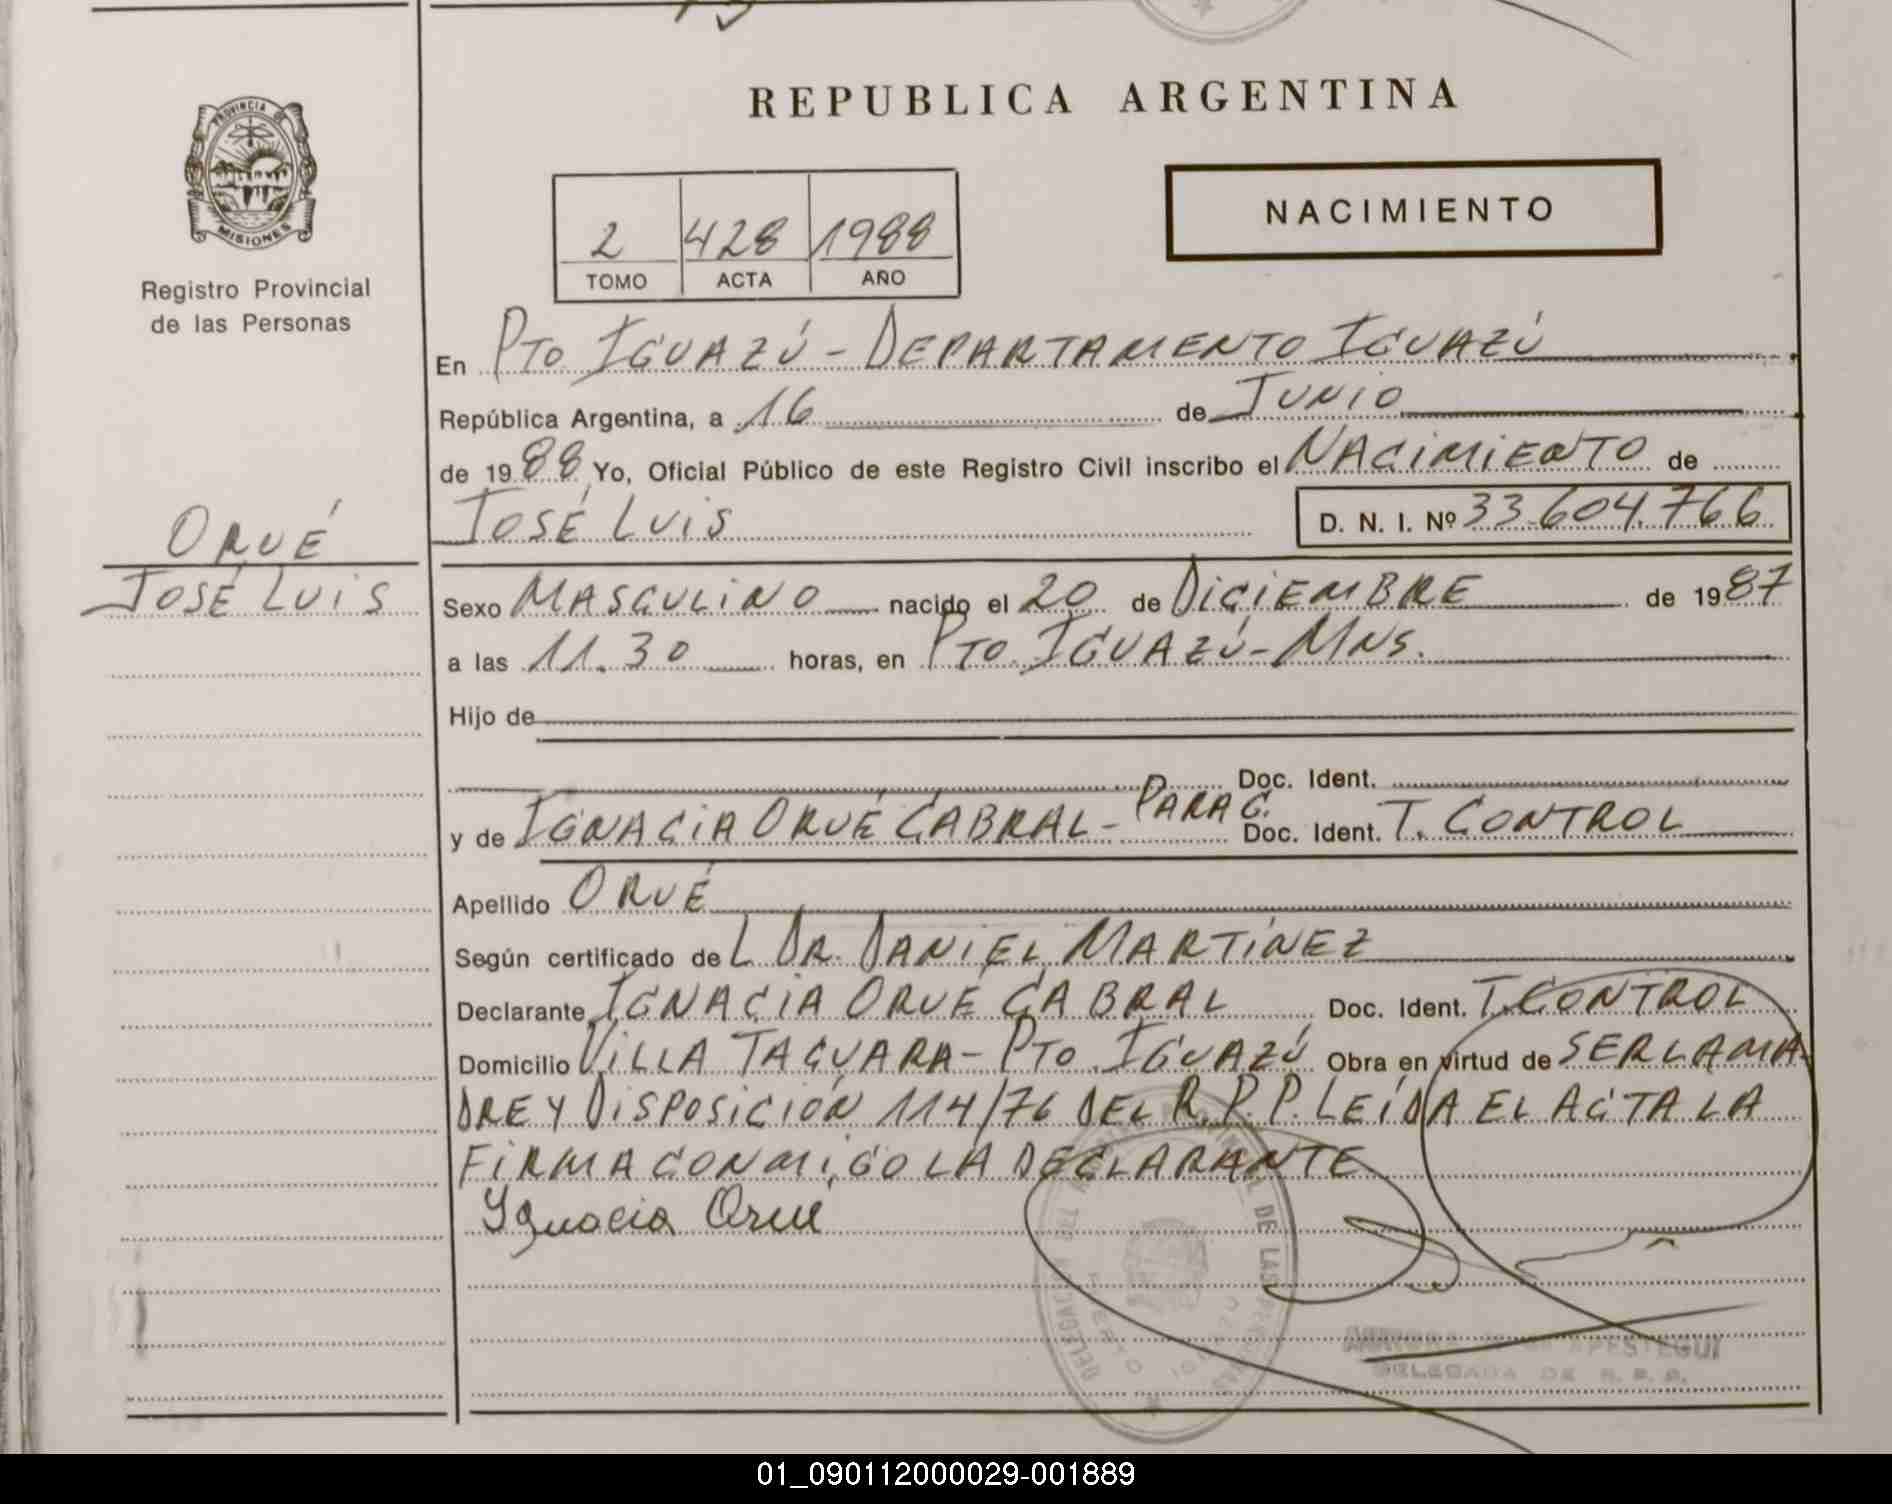 REPUBLICA ARGENTINA
PROVINCIA DE MISIONES
Registro Provincial
de las Personas
2 428 1988
TOMO ACTA AÑO
NACIMIENTO
En Pto IGUAZÚ - DEPARTAMENTO IGUAZÚ
República Argentina, a 16 de JUNIO
de 1988 Yo, Oficial Público de este Registro Civil inscribo el NACIMIENTO de
JOSÉ LUIS D. N. I. Nº 33.604.766
ORUÉ
JOSÉ LUIS
Sexo MASCULINO nacido el 20 de DICIEMBRE de 1987
a las 11.30 horas, en PTO. IGUAZÚ - MNS.
Hijo de
Doc. Ident.
y de IGNACIA ORUÉ CABRAL - PARAG. Doc. Ident. T. CONTROL
Apellido ORUÉ
Según certificado de L DR. DANIEL MARTÍNEZ
Declarante IGNACIA ORUÉ CABRAL Doc. Ident. T. CONTROL
Domicilio VILLA TACUARA - PTO. IGUAZÚ Obra en virtud de SER LA MA-
DRE Y DISPOSICIÓN 114/76 DEL R.P.P. LEÍDA EL ACTA LA
FIRMA CONMIGO LA DECLARANTE
Ygnacia Orué
DELEGACION DEL REGISTRO PROVINCIAL DE LAS PERSONAS
PUERTO IGUAZU
APESTEGUI
DELEGADA DE R. P. P.
01_090112000029-001889